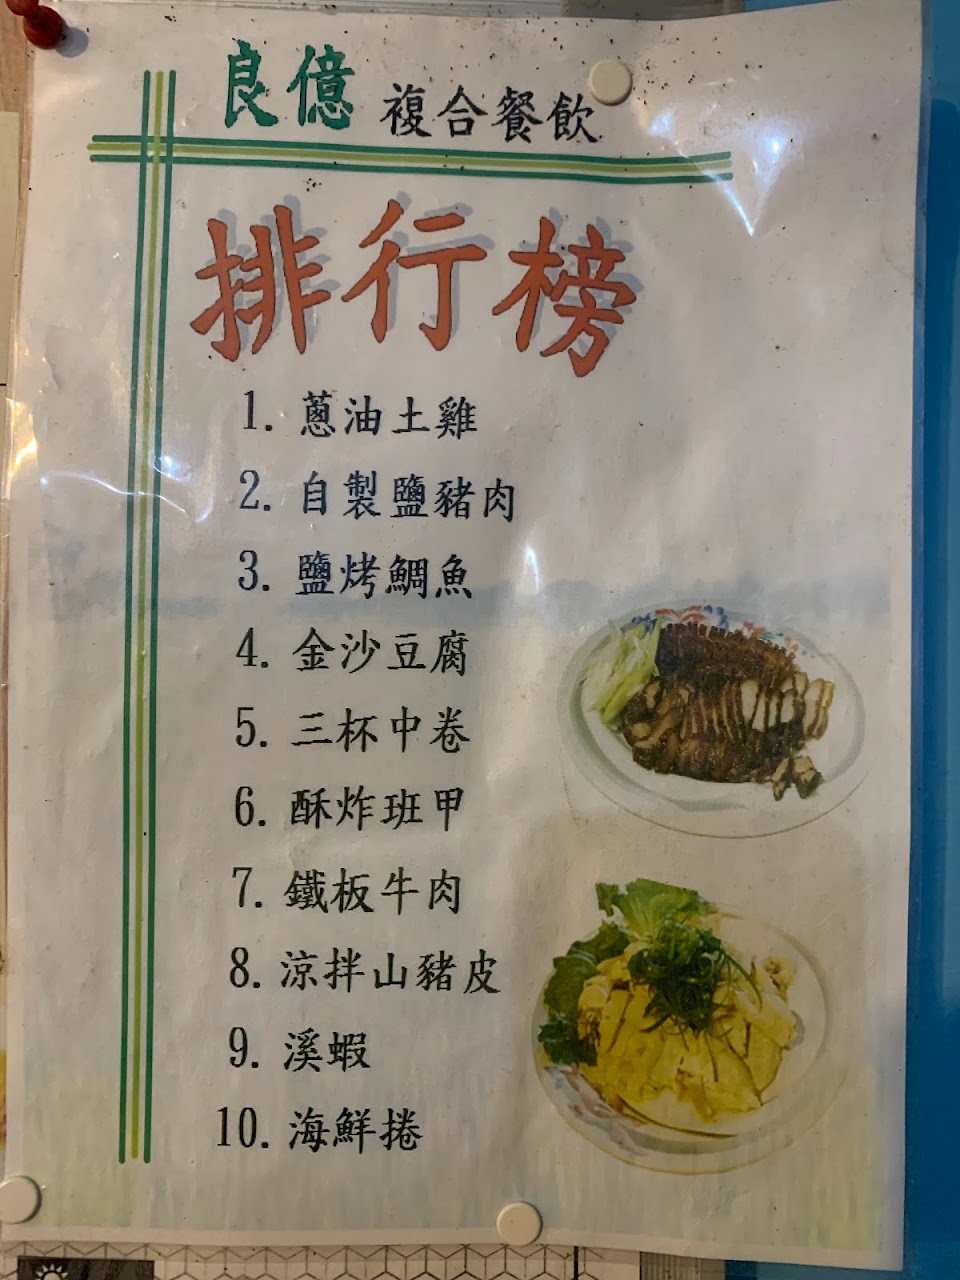 良億 複合餐飲
排行榜
1. 蔥油土雞
2. 自製鹽豬肉
3. 鹽烤鯛魚
4. 金沙豆腐
5. 三杯中卷
6. 酥炸班甲
7. 鐵板牛肉
8. 涼拌山豬皮
9. 溪蝦
10. 海鮮捲